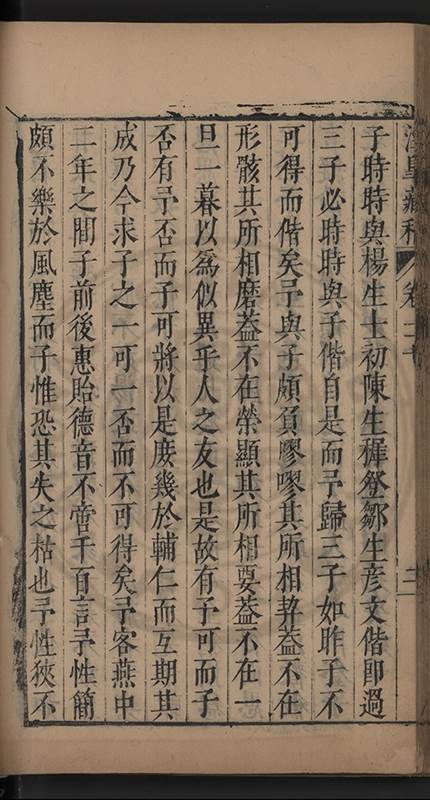 藏稿 卷二十 三
子時時與楊生士初陳生穉登鄒生彥文偕即過
三子必時時與子偕自是而予歸三子如昨子不
可得而偕矣予與子頗負嘐嘐其所相契葢不在
形骸其所相磨葢不在榮顯其所相要葢不在一
旦一暮以爲似異乎人之友也是故有予可而子
否有予否而子可將以是庶幾於輔仁而互期其
成乃今求子之一可一否而不可得矣予客燕中
二年之間子前後惠貽德音不啻千百言予性簡
頗不樂於風塵而子惟恐其失之枯也予性狹不